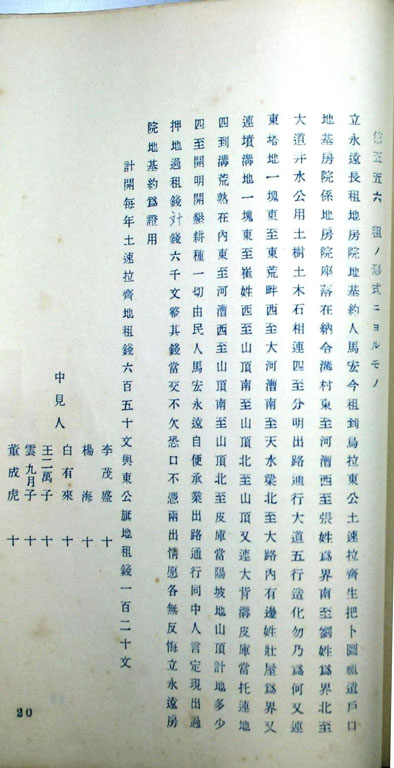 租ノ形式ニヨルモノ
立永遠長租地房院地基約人馬宏今租到烏拉東公土速拉齊生把卜圖祖遺戶口
地基房院係地房院座落在納令溝村東至河漕西至張姓爲界南至劉姓爲界北至
大道井水公用土樹土木石相連四至分明出路通行大道五行造化勿乃爲何又連
東塔地一塊東至東荒畔西至大河漕南至天水梁北至大路內有邊姓壯屋爲界又
連墳溝地一塊東至崔姓西至山頂南至山頂北至山頂又連大背溝皮庫當托連地
四到溝荒熟在內東至河漕西至山頂南至山頂北至皮庫當陽坡地山頂計地多少
四至開明開墾耕種一切由民人馬宏永遠自便承業出路通行同中人言定現出過
押地過租錢計錢六千文整其錢當交不欠恐口不憑兩出情愿各無反悔立永遠房
院地基約爲證用
計開每年土速拉齊地租錢六百五十文與東公旗地租錢一百二十文
中見人
李茂盛 十
楊海 十
白有來 十
王二萬子 十
雲九月子 十
董成虎 十
20